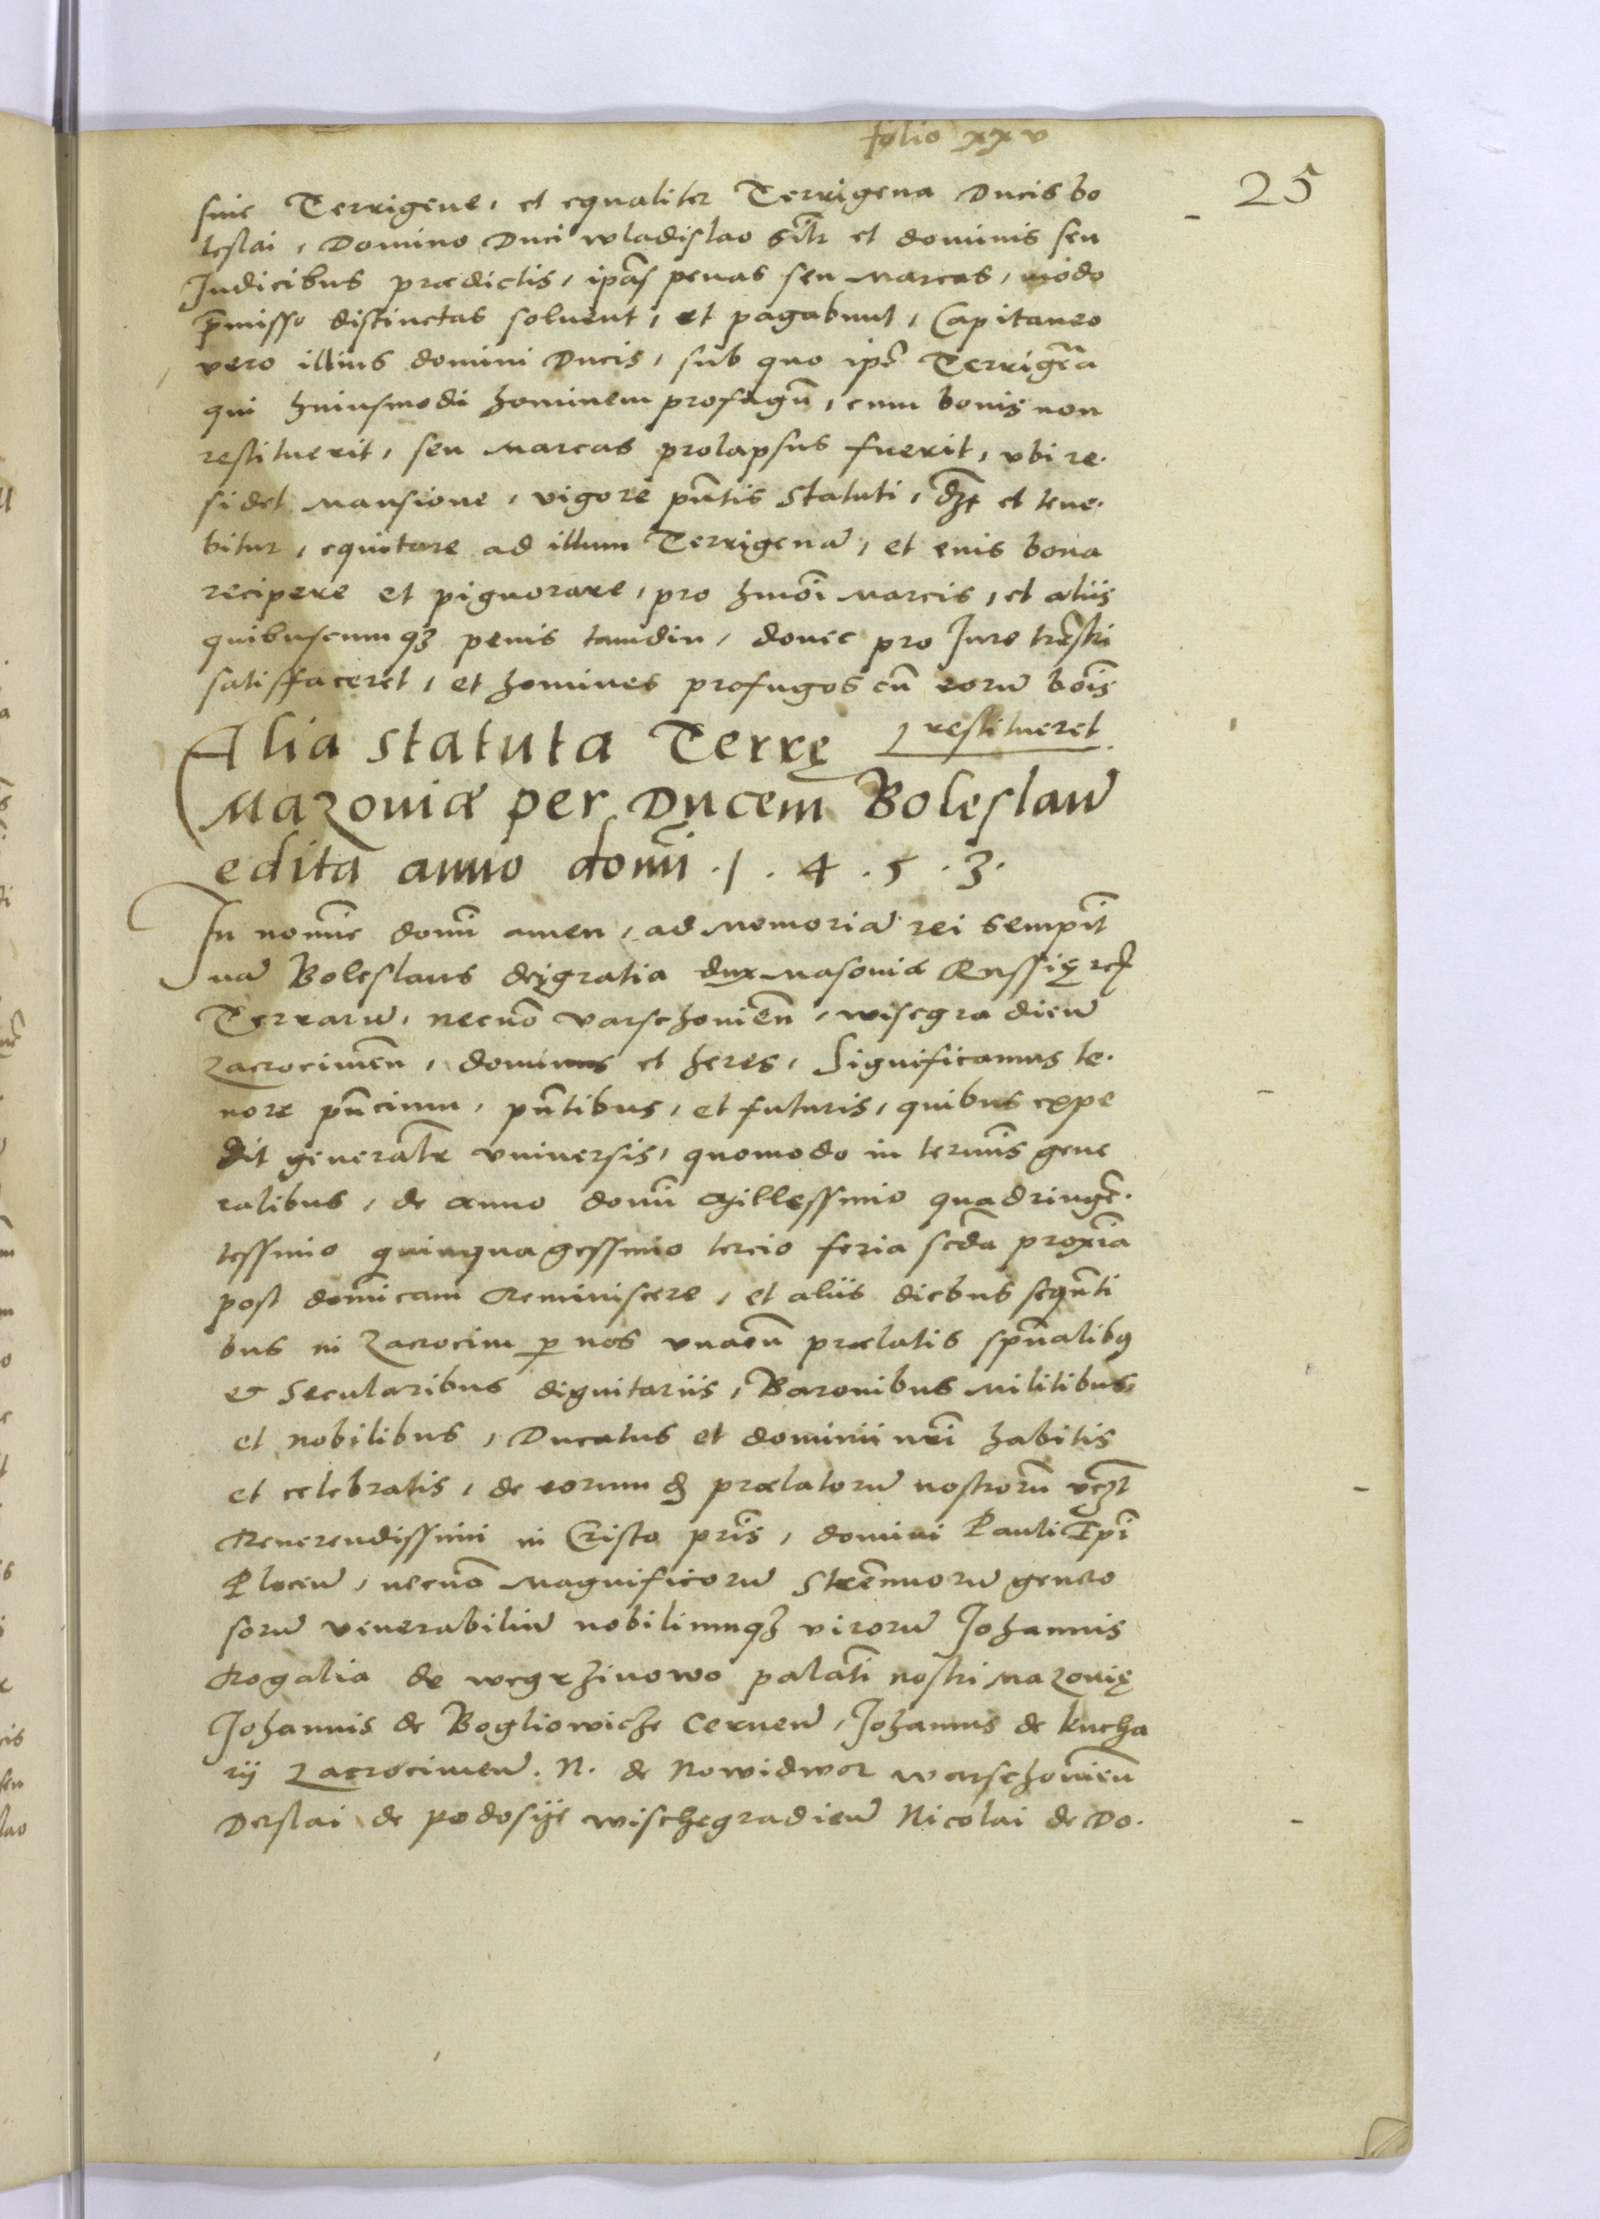 folio xxv
25
sine Terrigene, et equaliter Terrigena Ducis bo
leslai, Domino Duci wladislao siĩlr et dominis seu
Judicibus prædictis, ipãs penas seu marcas, modo
p̃misso distinctas soluent, et pagabunt, Capitaneo
vero illius domini Ducis, sub quo ipsẽ Terrigẽa
qui huiusmodi hominem profugũ, cum bonis non
restituerit, seu marcas prolapsus fuerit, vbi re.
sidet mansione, vigore pñtis statuti, et tene.
bitur, equitare ad illum Terrigenã, et euis bona
recipere et pignorare, pro hmõi marcis, et aliis
quibuscumqȝ penis tamdiu, donec pro Jure trẽstri
satisfaceret, et homines profugos cũ eorũ bõis
restitueret
Alia statuta Terrę
Mazouiæ per Ducem Boleslaũ
edita anno domĩ .1.4.5.3.
In nomĩe domĩ amen, ad memoriã rei sempit̃
nã Boleslaus deigratia dux masouiæ Russię
Terrarũ, necnõ varschouieñ, wisegradieñ
Zacrocimeñ, dominus et heres, Significamus te.
nore pñcium, pñtibus, et futuris, quibus expe
dit generałr vniuersis, quomodo in termĩs gene
ralibus, de anno domĩ Millessimo quadringẽ.
tessimo quinquagessimo tercio feria scđa proxĩa
post domĩcam Reminiscere, et aliis diebus sequñti
bus in Zacrocim ꝑ nos vnacũ prælatis spũalibꝰ
& secularibus dignitariis, Baronibus militibus,
et nobilibus, Ducatus et dominii nr̃i habitis
et celebratis, de eorum prælatorũ nostrorũ
Reuerendissimi in Cristo prĩs, domini Pauli Epĩ
Ploceñ, necnõ magnificorũ strẽnuorũ genero
sorũ venerabiliũ nobiliumqȝ virorũ Johannis
Rogalia de wegrzinowo palatĩ nostri mazouię
Johannis de Bogliowicze Cerneñ, Johannis de kucha
rij Zacrocimeñ. N. de Nowidwor warschouieñ
Derslai de podosije wischegradieñ Nicolai de Do.